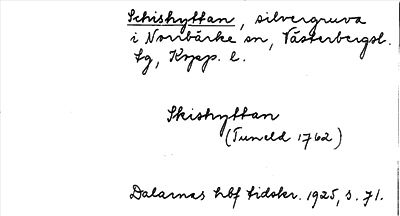 Schishyttan, silvergruva
i Norrbärke sn, Västerbergsl.
tg, Kopp. l.
Skishyttan
(Tuneld 1762)
Dalarnas hbf tidskr. 1925, s. 71.